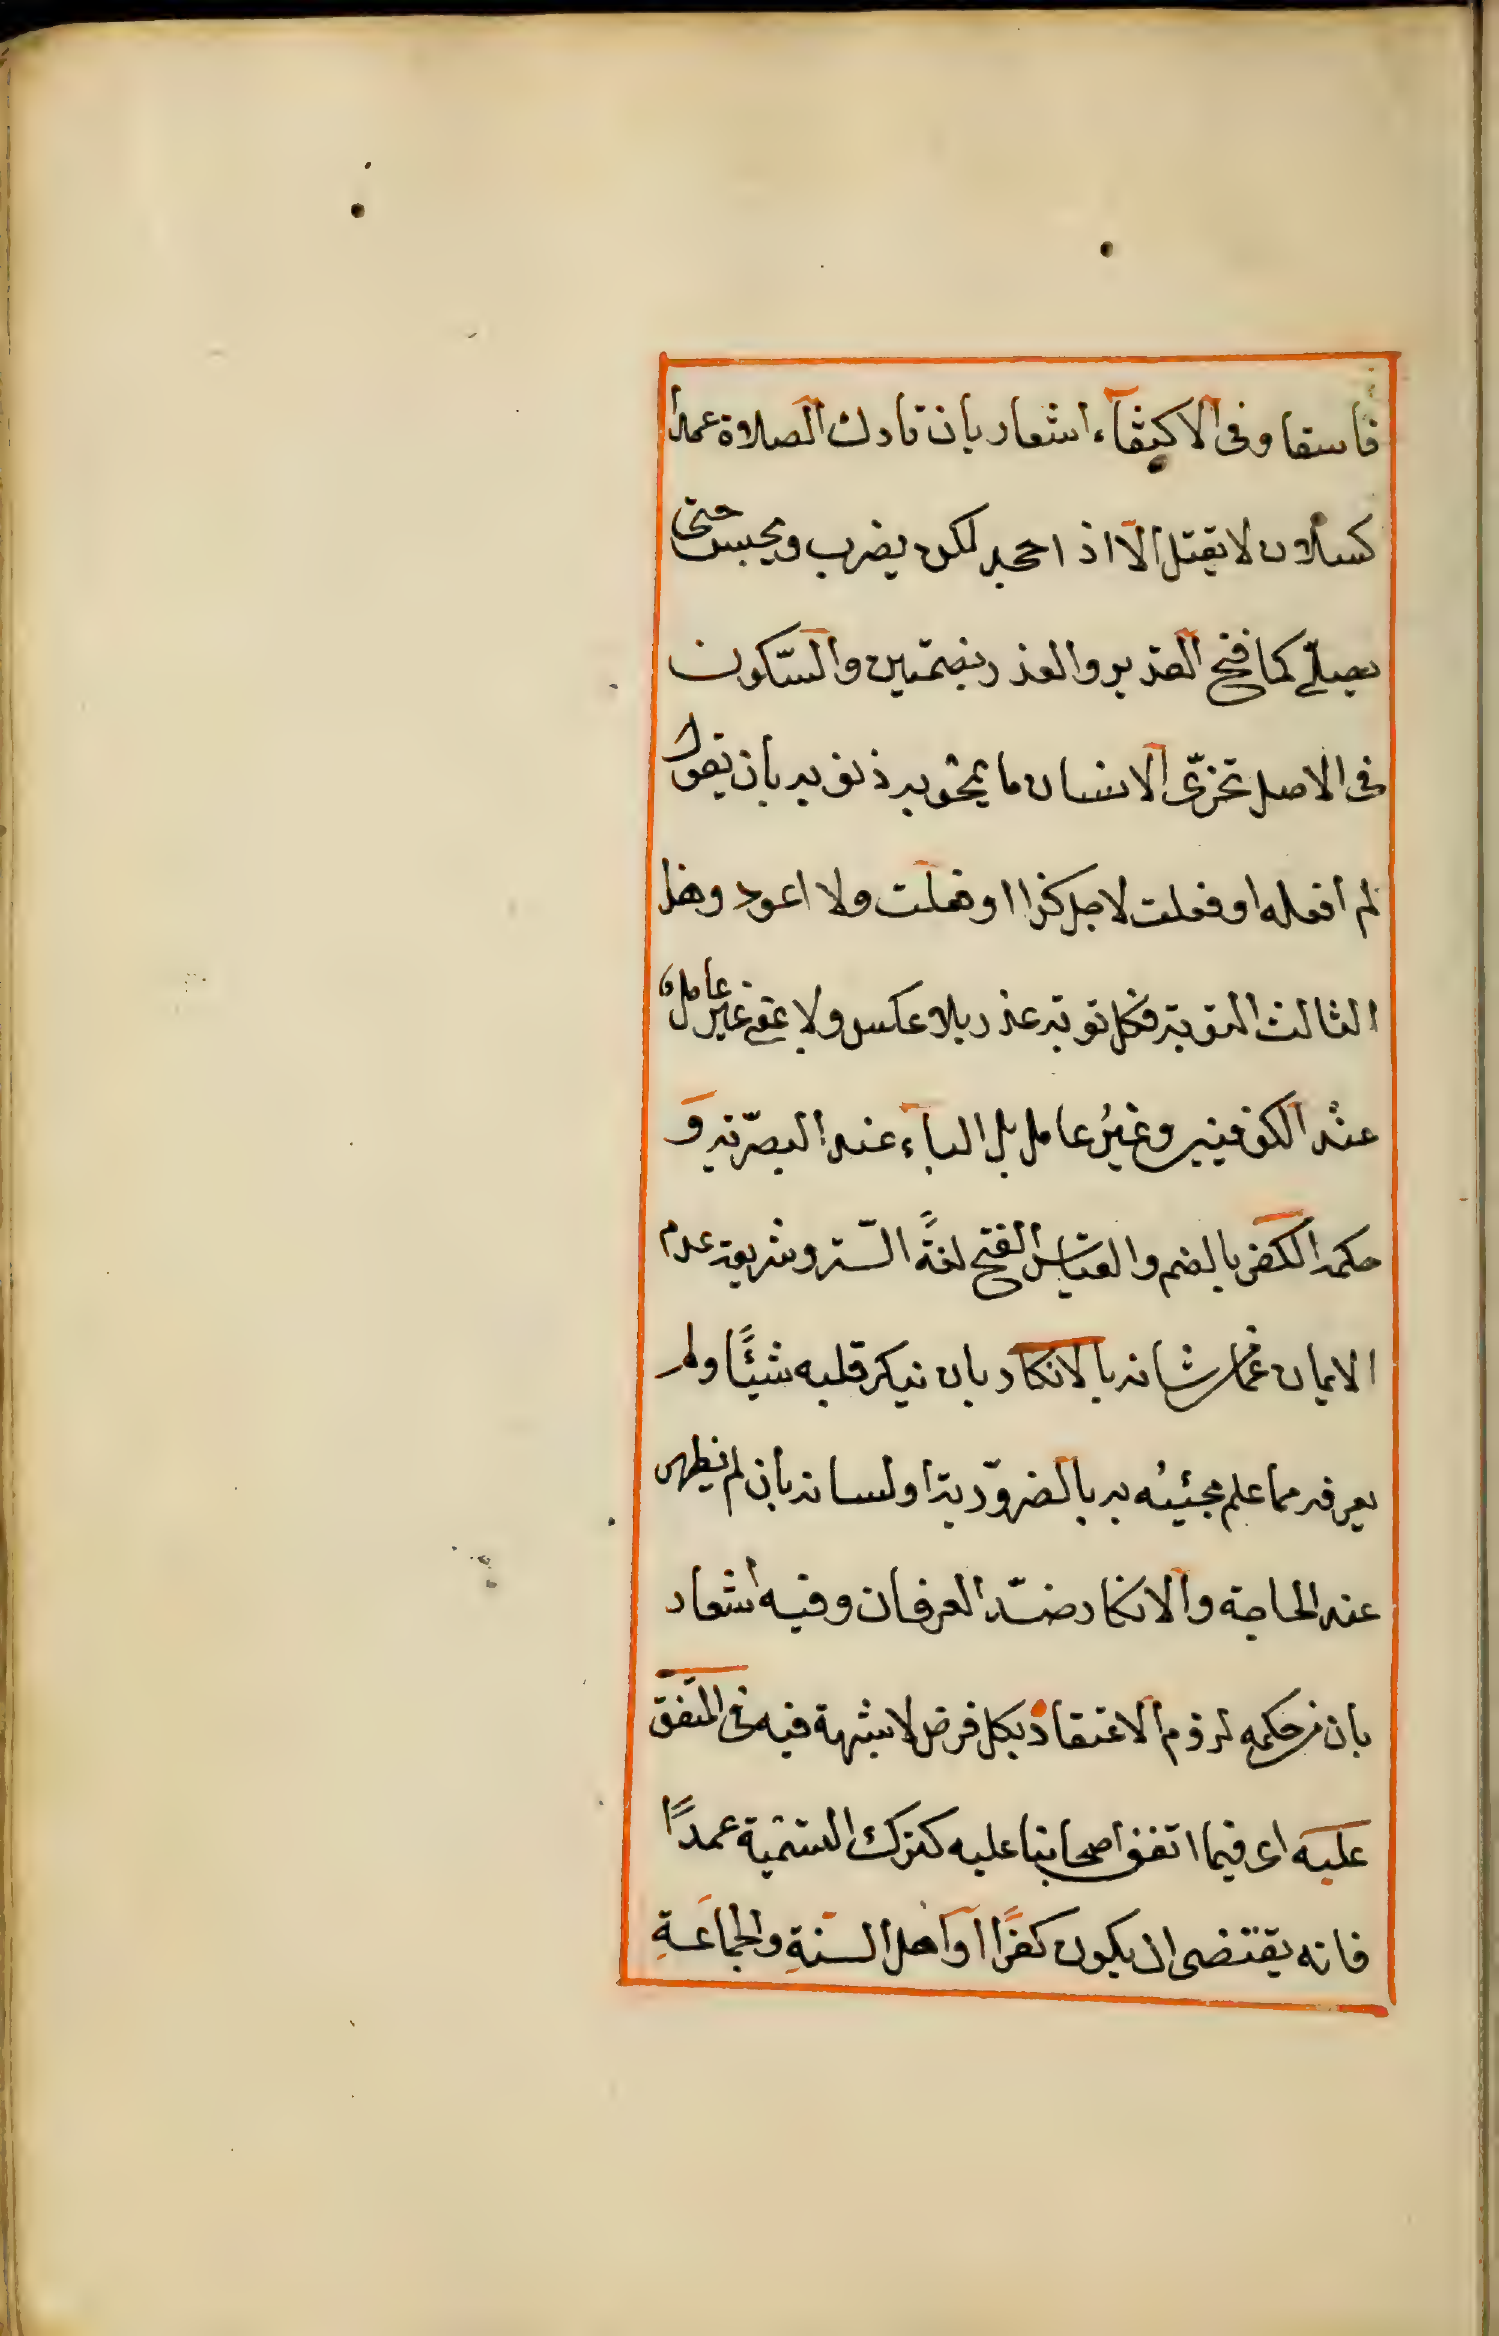 فاسقا وفى الاكتفآء اشعار بان تارك الصلاة عمدا
كسلان لا يقتل الا اذا جحد لكن يضرب ويحبس حتى
يصلّے كما فى فتح القدير والعذر بضمتين والسّكون
فى الاصل تحرّى الانسان ما يمحو به ذنوبه بان يقول
لم افعله او فعلت لاجل كذا او فعلت ولا اعود وهذا
الثالث التوبة فكل توبة عذر بلا عكس ولا غير عامل
عند الكوفيين وغيرُ عامل بل الباء عند البصرية و
حكمه الكفر بالضم والقياس الفتح لغةً الستر وشريعة عدم
الايمان عما من شانه بالانكار بان ينكر قلبه شيئًا ولم
يعرفه مما علم مجيئه به بالضروّرية او لسانه بان لم يظهر
عند الحاجة والانكار ضدّ العرفان وفيه اشعار
بان من حكمه لزوم الاعتقاد بكل فرض لا شبهة فيه فى المتّفق
عليه اى فيما اتفق اصحابنا عليه كترك التسمية عمدًا
فانه يقتضى ان يكون كفرًا او اهل السنةِ والجماعةِ